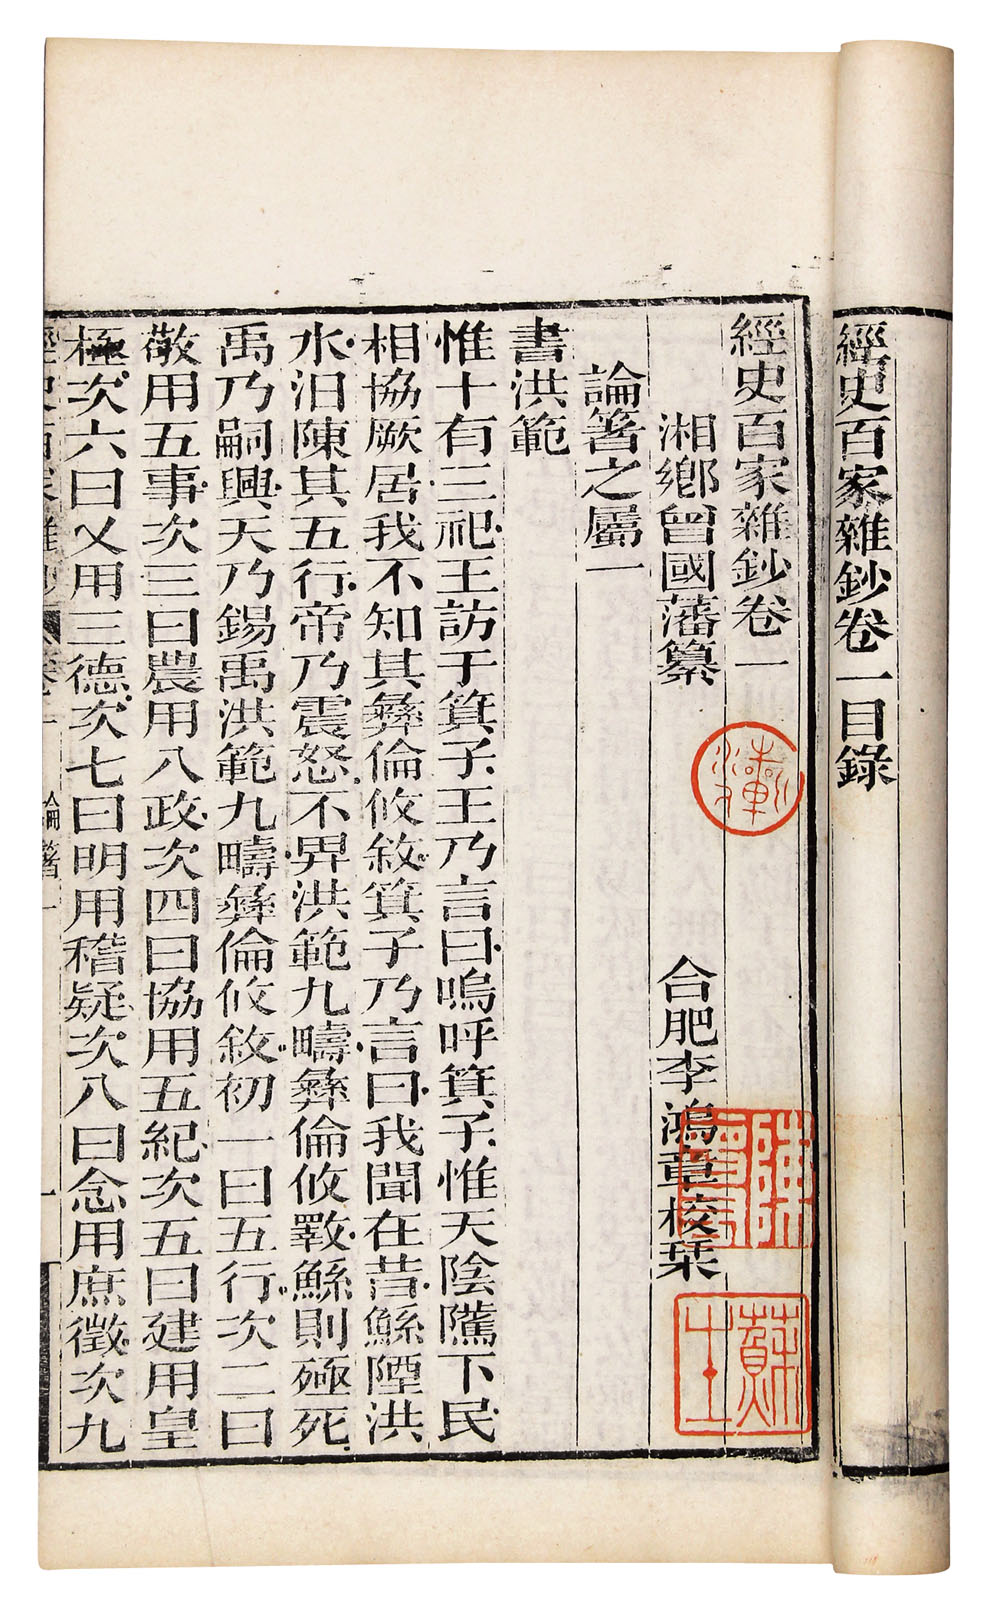 經史百家雜鈔卷一目錄
經史百家雜鈔卷一
湘鄉曾國藩纂 合肥李鴻章校栞
論箸之屬一
書洪範
惟十有三祀王訪于箕子王乃言曰嗚呼箕子惟天陰騭下民
相協厥居我不知其彝倫攸敘箕子乃言曰我聞在昔鯀陻洪
水汨陳其五行帝乃震怒不畀洪範九疇彝倫攸斁鯀則殛死
禹乃嗣興天乃錫禹洪範九疇彝倫攸敘初一曰五行次二曰
敬用五事次三曰農用八政次四曰協用五紀次五曰建用皇
極次六曰乂用三德次七曰明用稽疑次八曰念用庶徵次九
經史百家雜鈔 卷一 論箸一 一